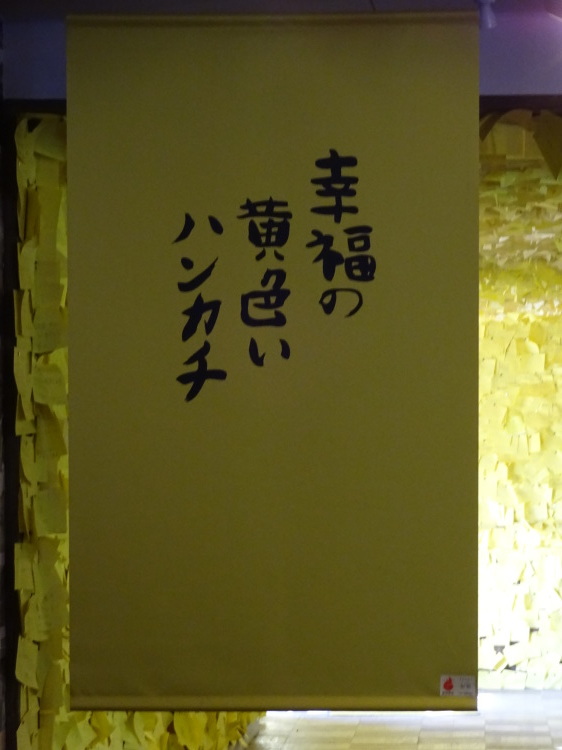 幸福の
黄色い
ハンカチ